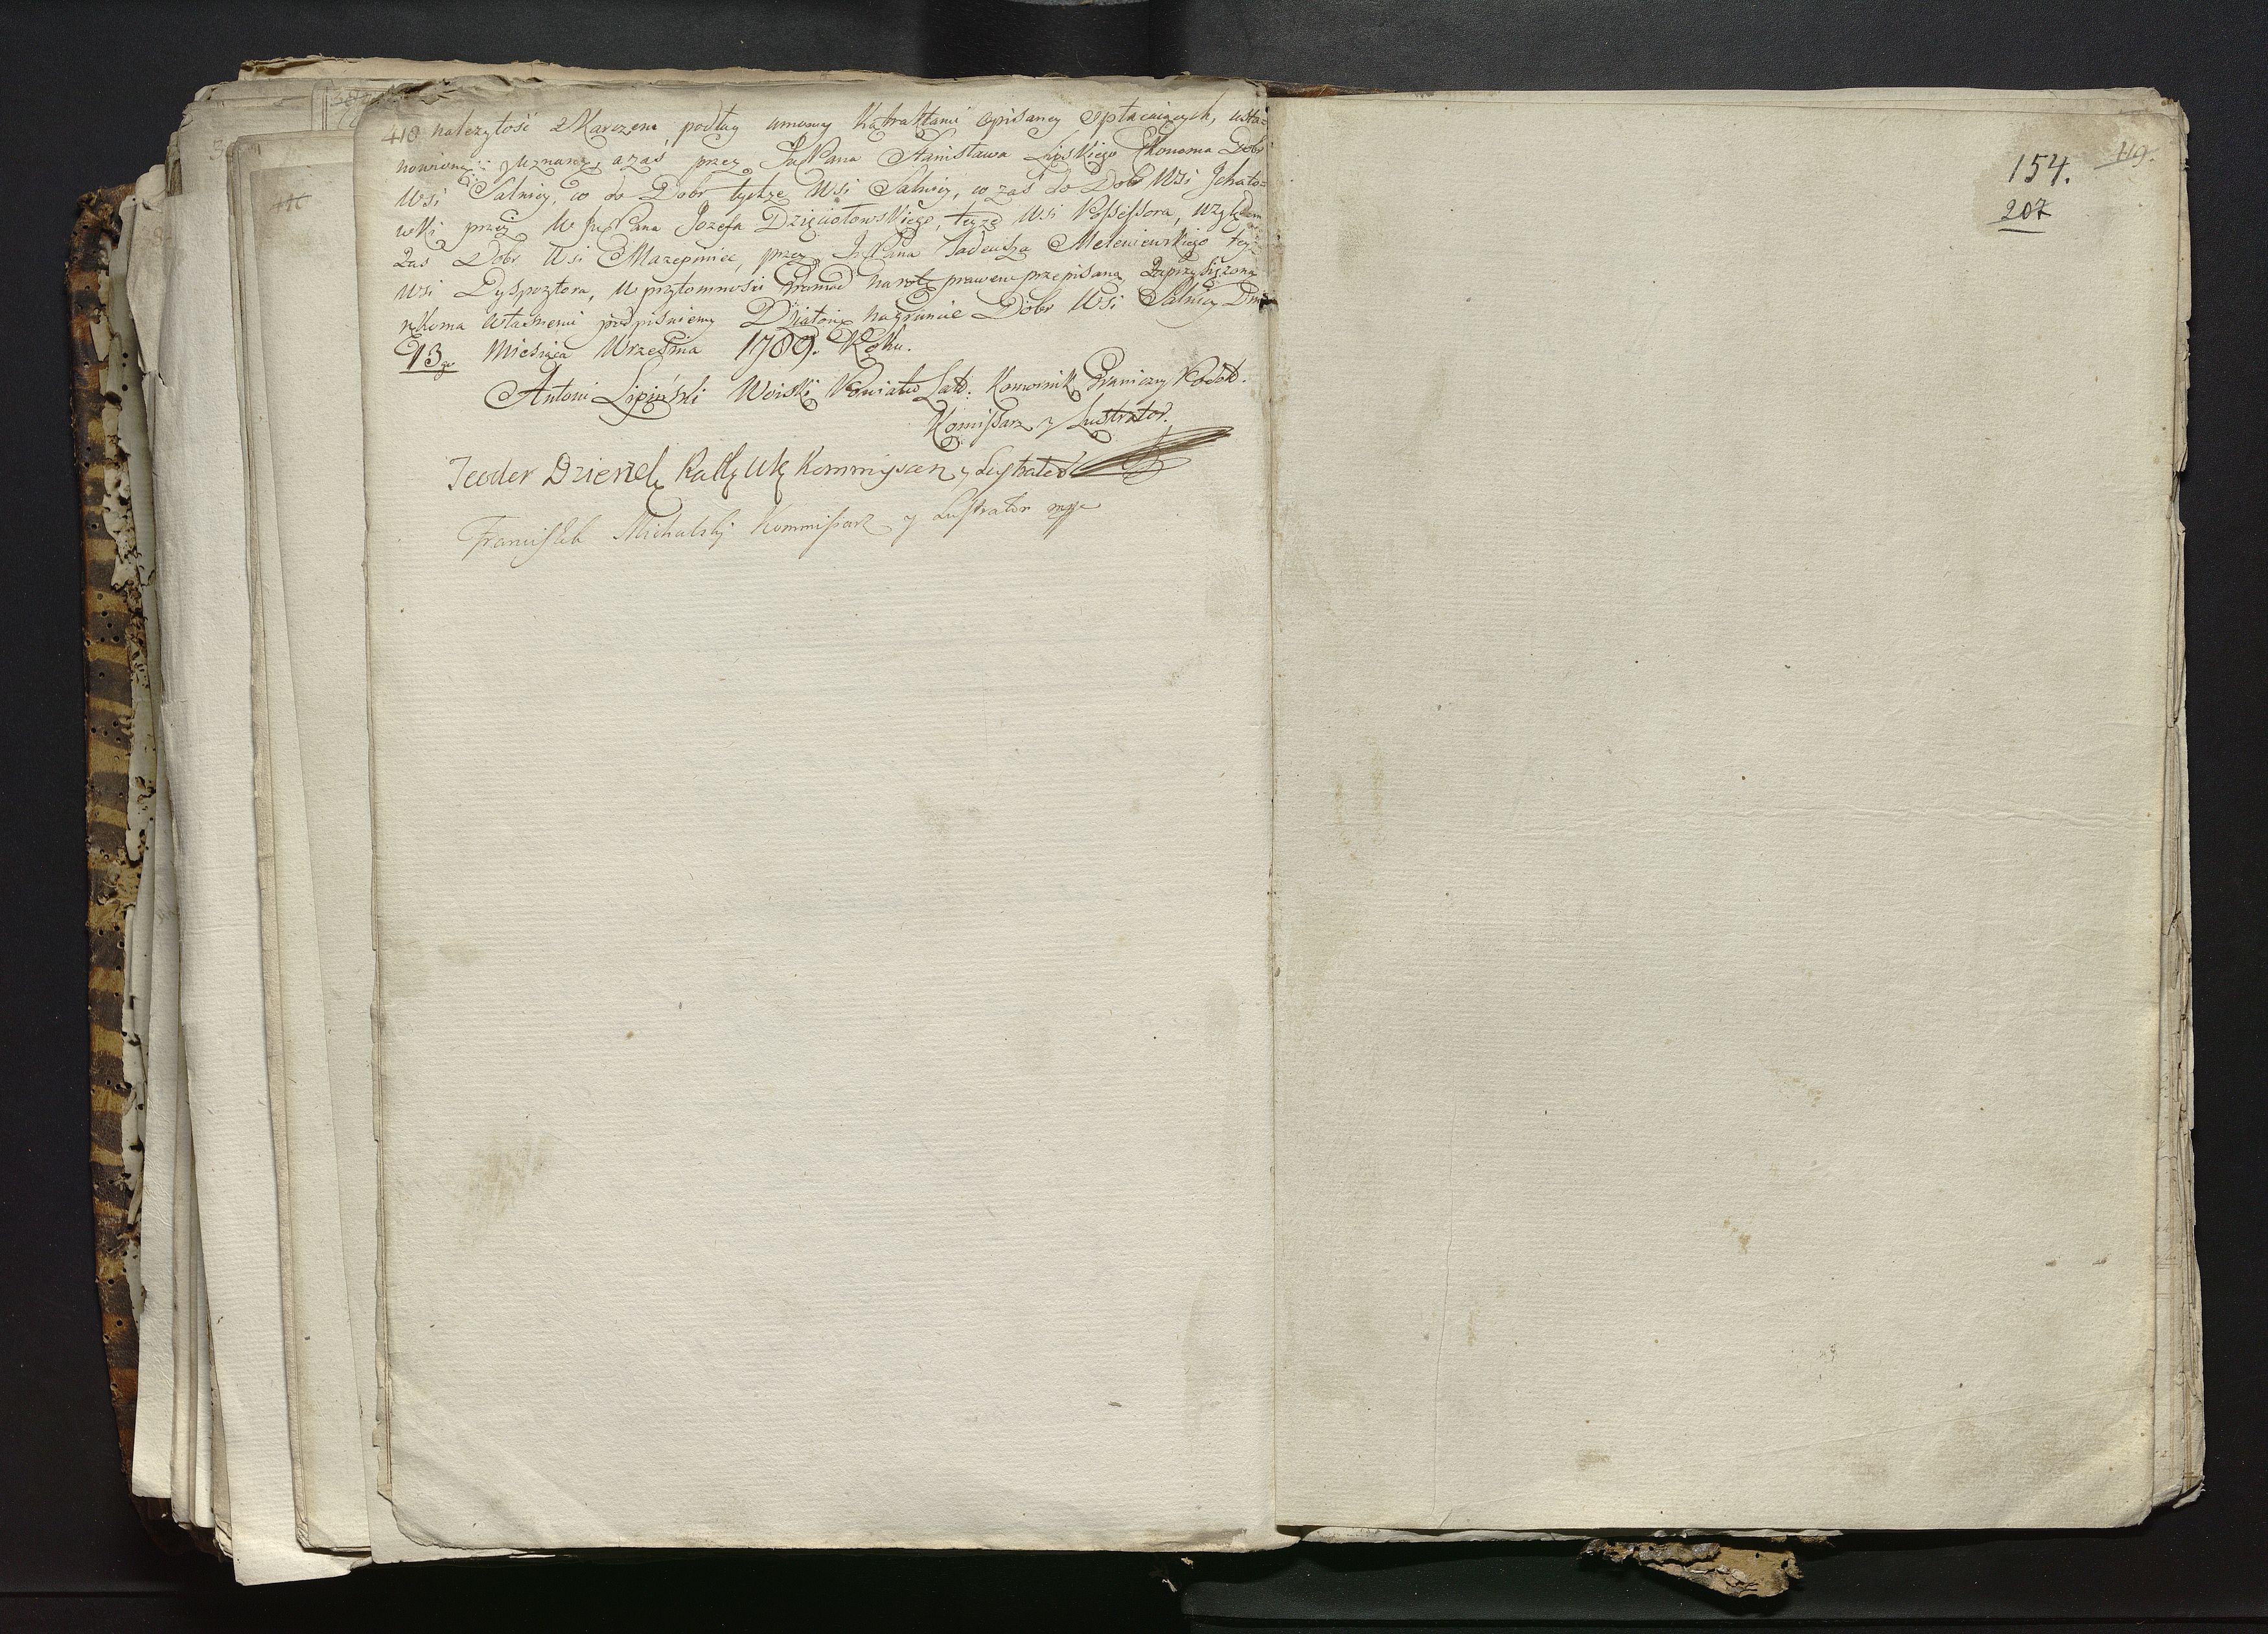 418 należytość z Karczem podług umowy Kątraktami opisaney opłacaiących, usta=
nowiony y uznany, a zaś przez JmPana Stanisława Lipskiego Ekonoma Dobr
Wsi Salnicy, co do Dobr tychże Wsi Salnicy, co zaś do Dobr Wsi Jchato=
wki przez W JmPana Jozefa Dzięciołowskiego, teyże Wsi Possessora, względem
zaś Dobr Wsi Mazepiniec, przez JmPana Tadeusza Meleniewskiego teyż
Wsi Dyspozytora, w przytomności Gromad na rotę prawem przepisaną zaprzysiężoną
rękoma własnemi podpisuiemy Działo się na gruncie Dobr Wsi Salnicy Dnia
13go Miesiąca Września 1789. Roku.
Antoni Lipiński Woiski Powiatu Lat: Komornik Graniczny Podol.
Komissarz y Lustrator.
Teodor Dzierżek Kommisarz y Lustrator
Franciszek Michalski Kommissarz y Lustrator mp
154.
207
419.